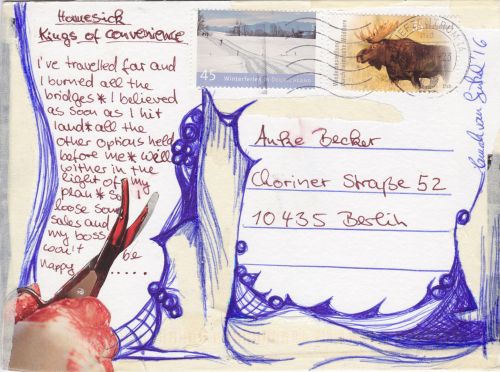 Homesick
Kings of convenience
I've travelled far and
I burned all the
bridges * I believed
as soon as I hit
land * all the
other options held
before me * will
wither in the
light of my
plan * So I
loose some
sales and
my boss
won't be
happy ......
45 Winterferien in Deutschland
Anke Becker
Choriner Straße 52
10435 Berlin
'16